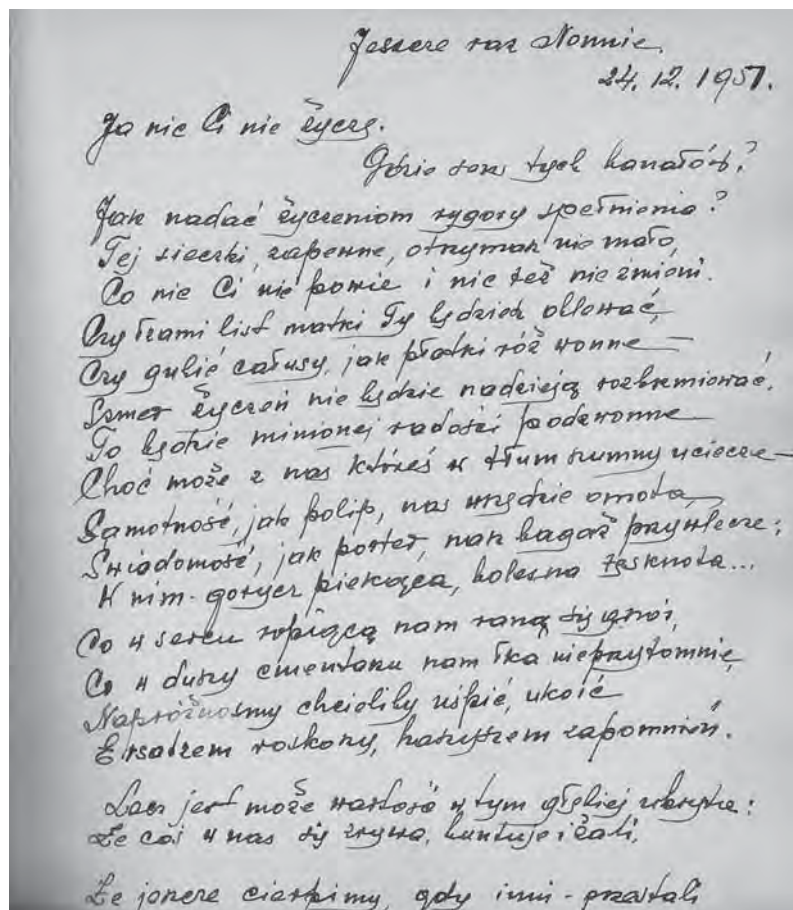 Jeszcze raz Nonnie.
24.12.1957.
Ja nic Ci nie życzę.
Gdzie sens tych banałów?
Jak nadać życzeniom rygory spełnienia?
Tej sieczki, zapewne, otrzymasz nie mało,
Co nic Ci nie powie i nic też nie zmieni.
Czy łzami list matki Ty będziesz oblewać,
Czy gubić całusy, jak płatki róż wonne —
Szmer życzeń nie będzie nadzieją rozbrzmiewać.
To będzie minionej radości podzwonne
Choć może z nas któreś w tłum szumny uciecze —
Samotność, jak polip, nas wszędzie omota,
Świadomość, jak porter, nasz bagaż przywlecze;
W nim - gorycz piekąca, bolesna tęsknota...
Co w sercu ropiącą nam raną się
Co w duszy cmentarzu nam łka nieprzytomnie,
Napróżnośmy chcieliby uśpić, ukoić
Ersatzem rozkoszy, haszyszem zapomnień.
Lecz jest może wartość w tym głębiej ukryta:
Że coś w nas się zrywa, buntuje i żali,
Że jeszcze cierpimy, gdy inni - przestali